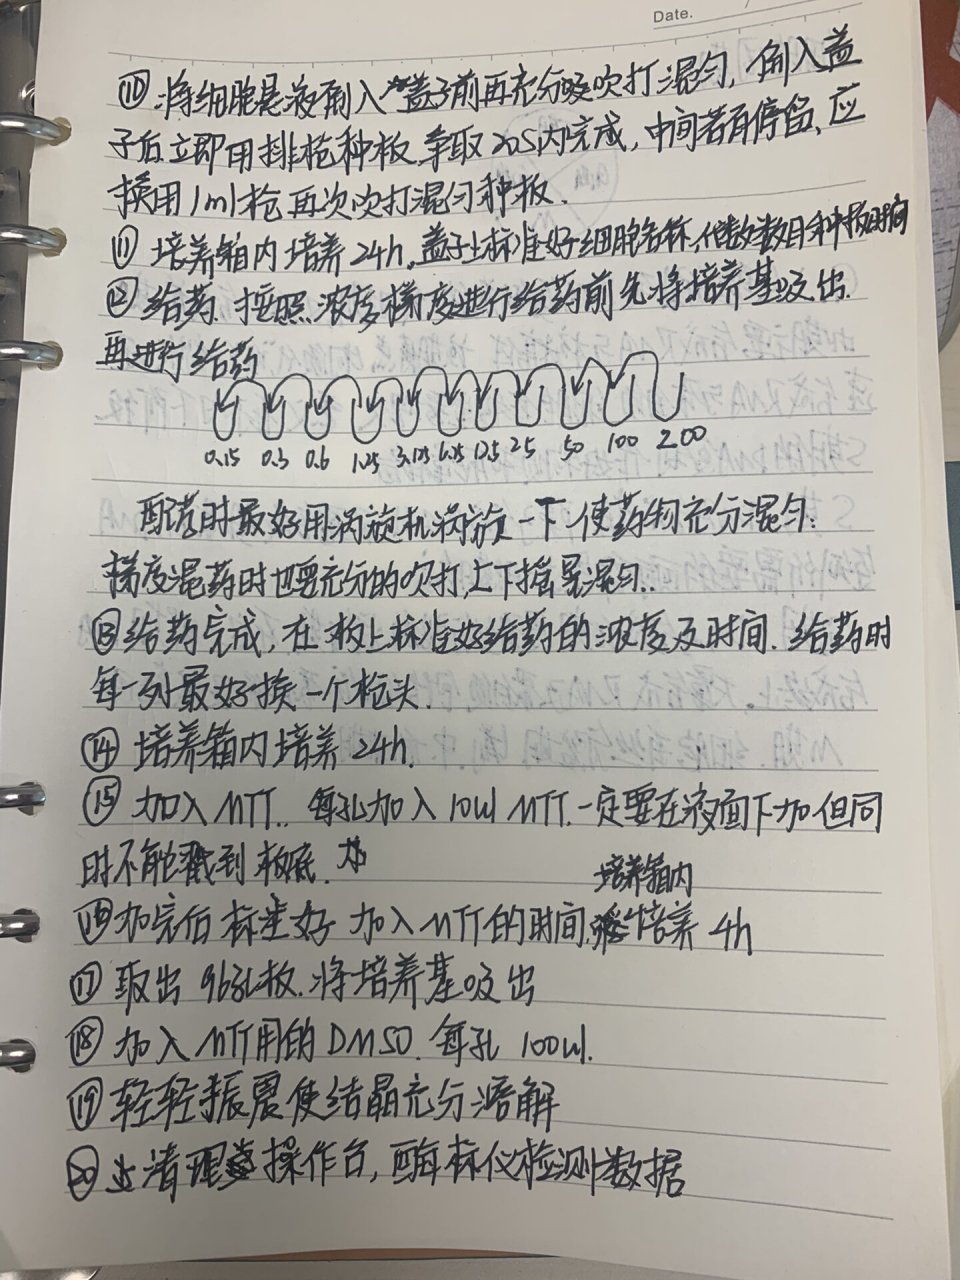 Date.
⑩ 将细胞悬液倒入盖子前再充分吹打混匀，倒入盖
子后立即用排枪种板，争取20S内完成，中间若有停留、应
换用1ml枪再次吹打混匀种板.
⑪ 培养箱内培养24h。盖子上标准好细胞名称、代数数目和种板时间
⑫ 给药. 按照浓度梯度进行给药前先将培养基吸出.
再进行给药
0.15 0.3 0.6 1.25 3.125 6.25 12.5 25 50 100 200
配药时最好用涡旋机涡旋一下.使药物充分混匀.
梯度混药时也要充分的吹打,上下混匀..
⑬ 给药完成，在板上标准好给药的浓度及时间. 给药时
每一列最好换一个枪头.
⑭ 培养箱内培养24h.
⑮ 加入MTT.. 每孔加入10ul MTT. 一定要在液面下加.但同
时不能戳到板底.
培养箱内
⑯ 加完后标准好加入MTT的时间.培养4h
⑰ 取出96孔板.将培养基吸出
⑱ 加入MTT用的DMSO. 每孔100ul.
⑲ 轻轻振震使结晶充分溶解
⑳ 清理操作台，酶标仪检测数据